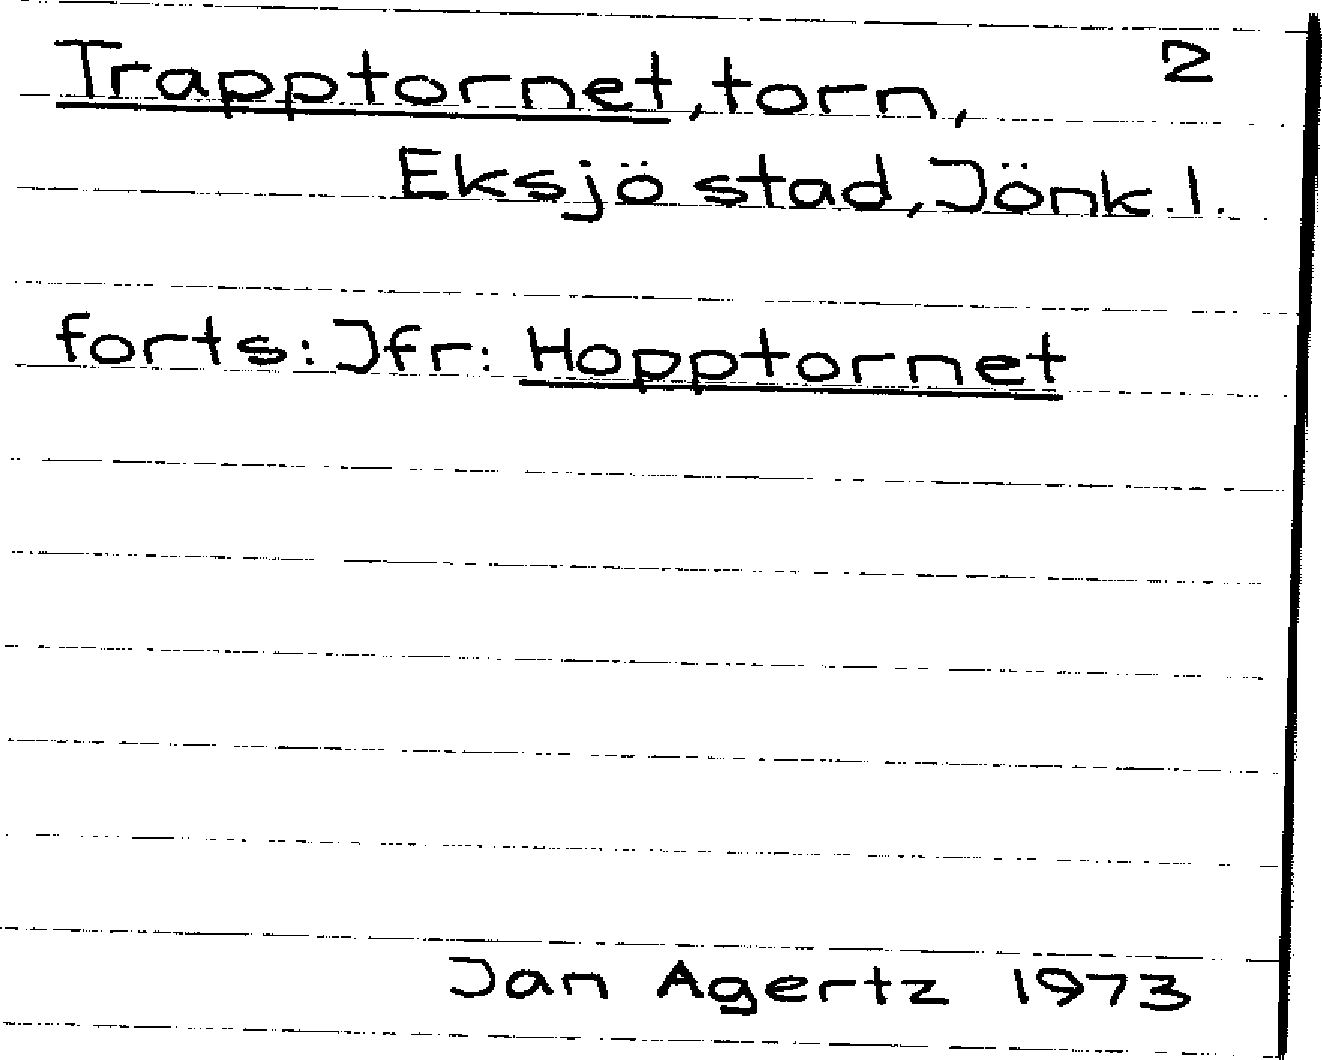 Trapptornet, torn, 2
Eksjö stad, Jönk. l.
forts: Jfr: Hopptornet
Jan Agertz 1973